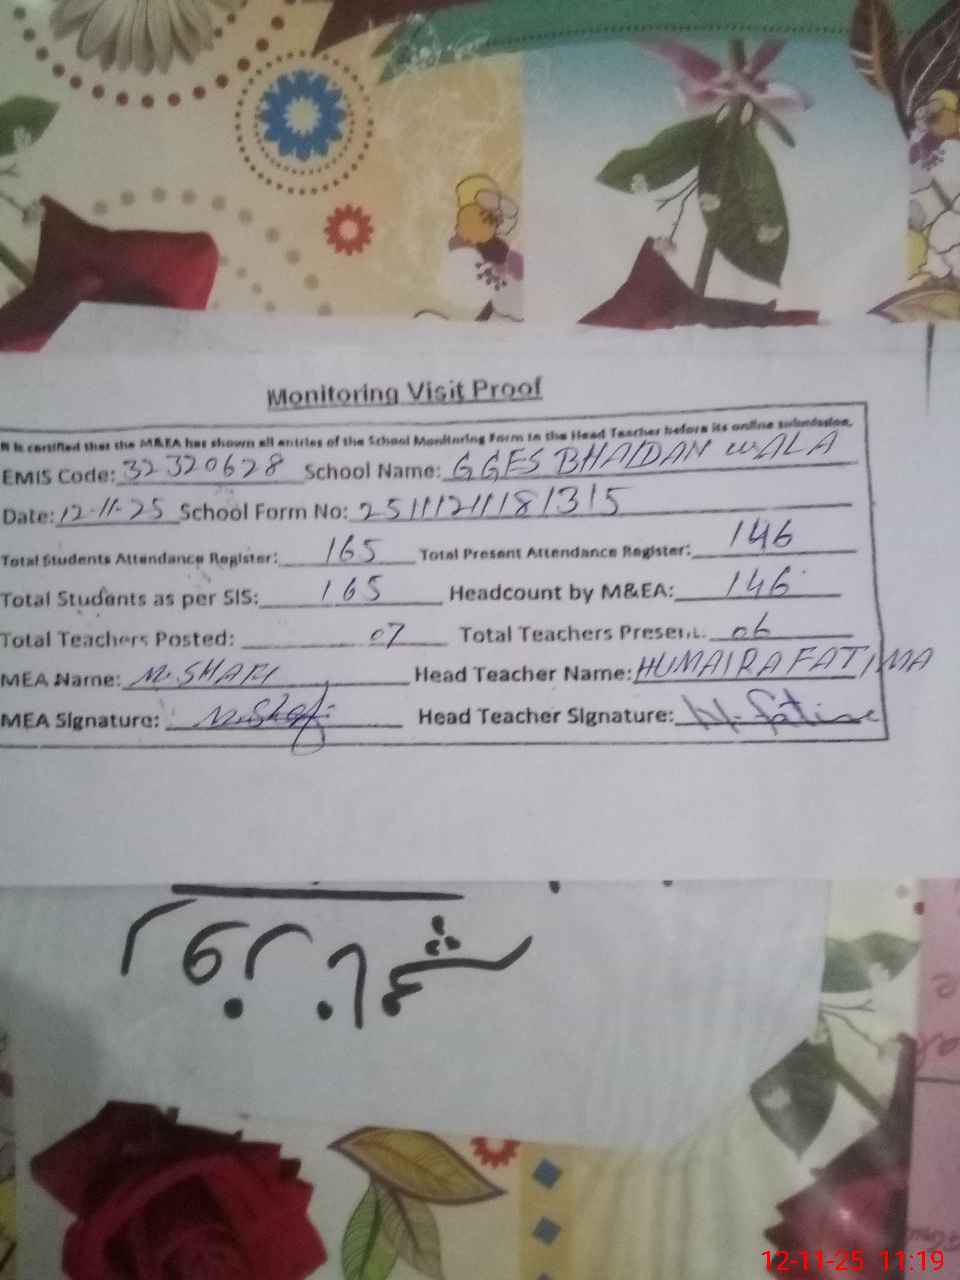 Monitoring Visit Proof
It is certified that the M&EA has shown all entries of the School Monitoring Form to the Head Teacher before its online submission.
EMIS Code: 32320628 School Name: GGES BHAIDAN WALA
Date: 12-11-25 School Form No: 25111211181315
Total Students Attendance Register: 165 Total Present Attendance Register: 146
Total Students as per SIS: 165 Headcount by M&EA: 146
Total Teachers Posted: 07 Total Teachers Present: 06
MEA Name: M. SHAFI Head Teacher Name: HUMAIRA FATIMA
MEA Signature: M. Shafi Head Teacher Signature: H. Fatima
12-11-25 11:19